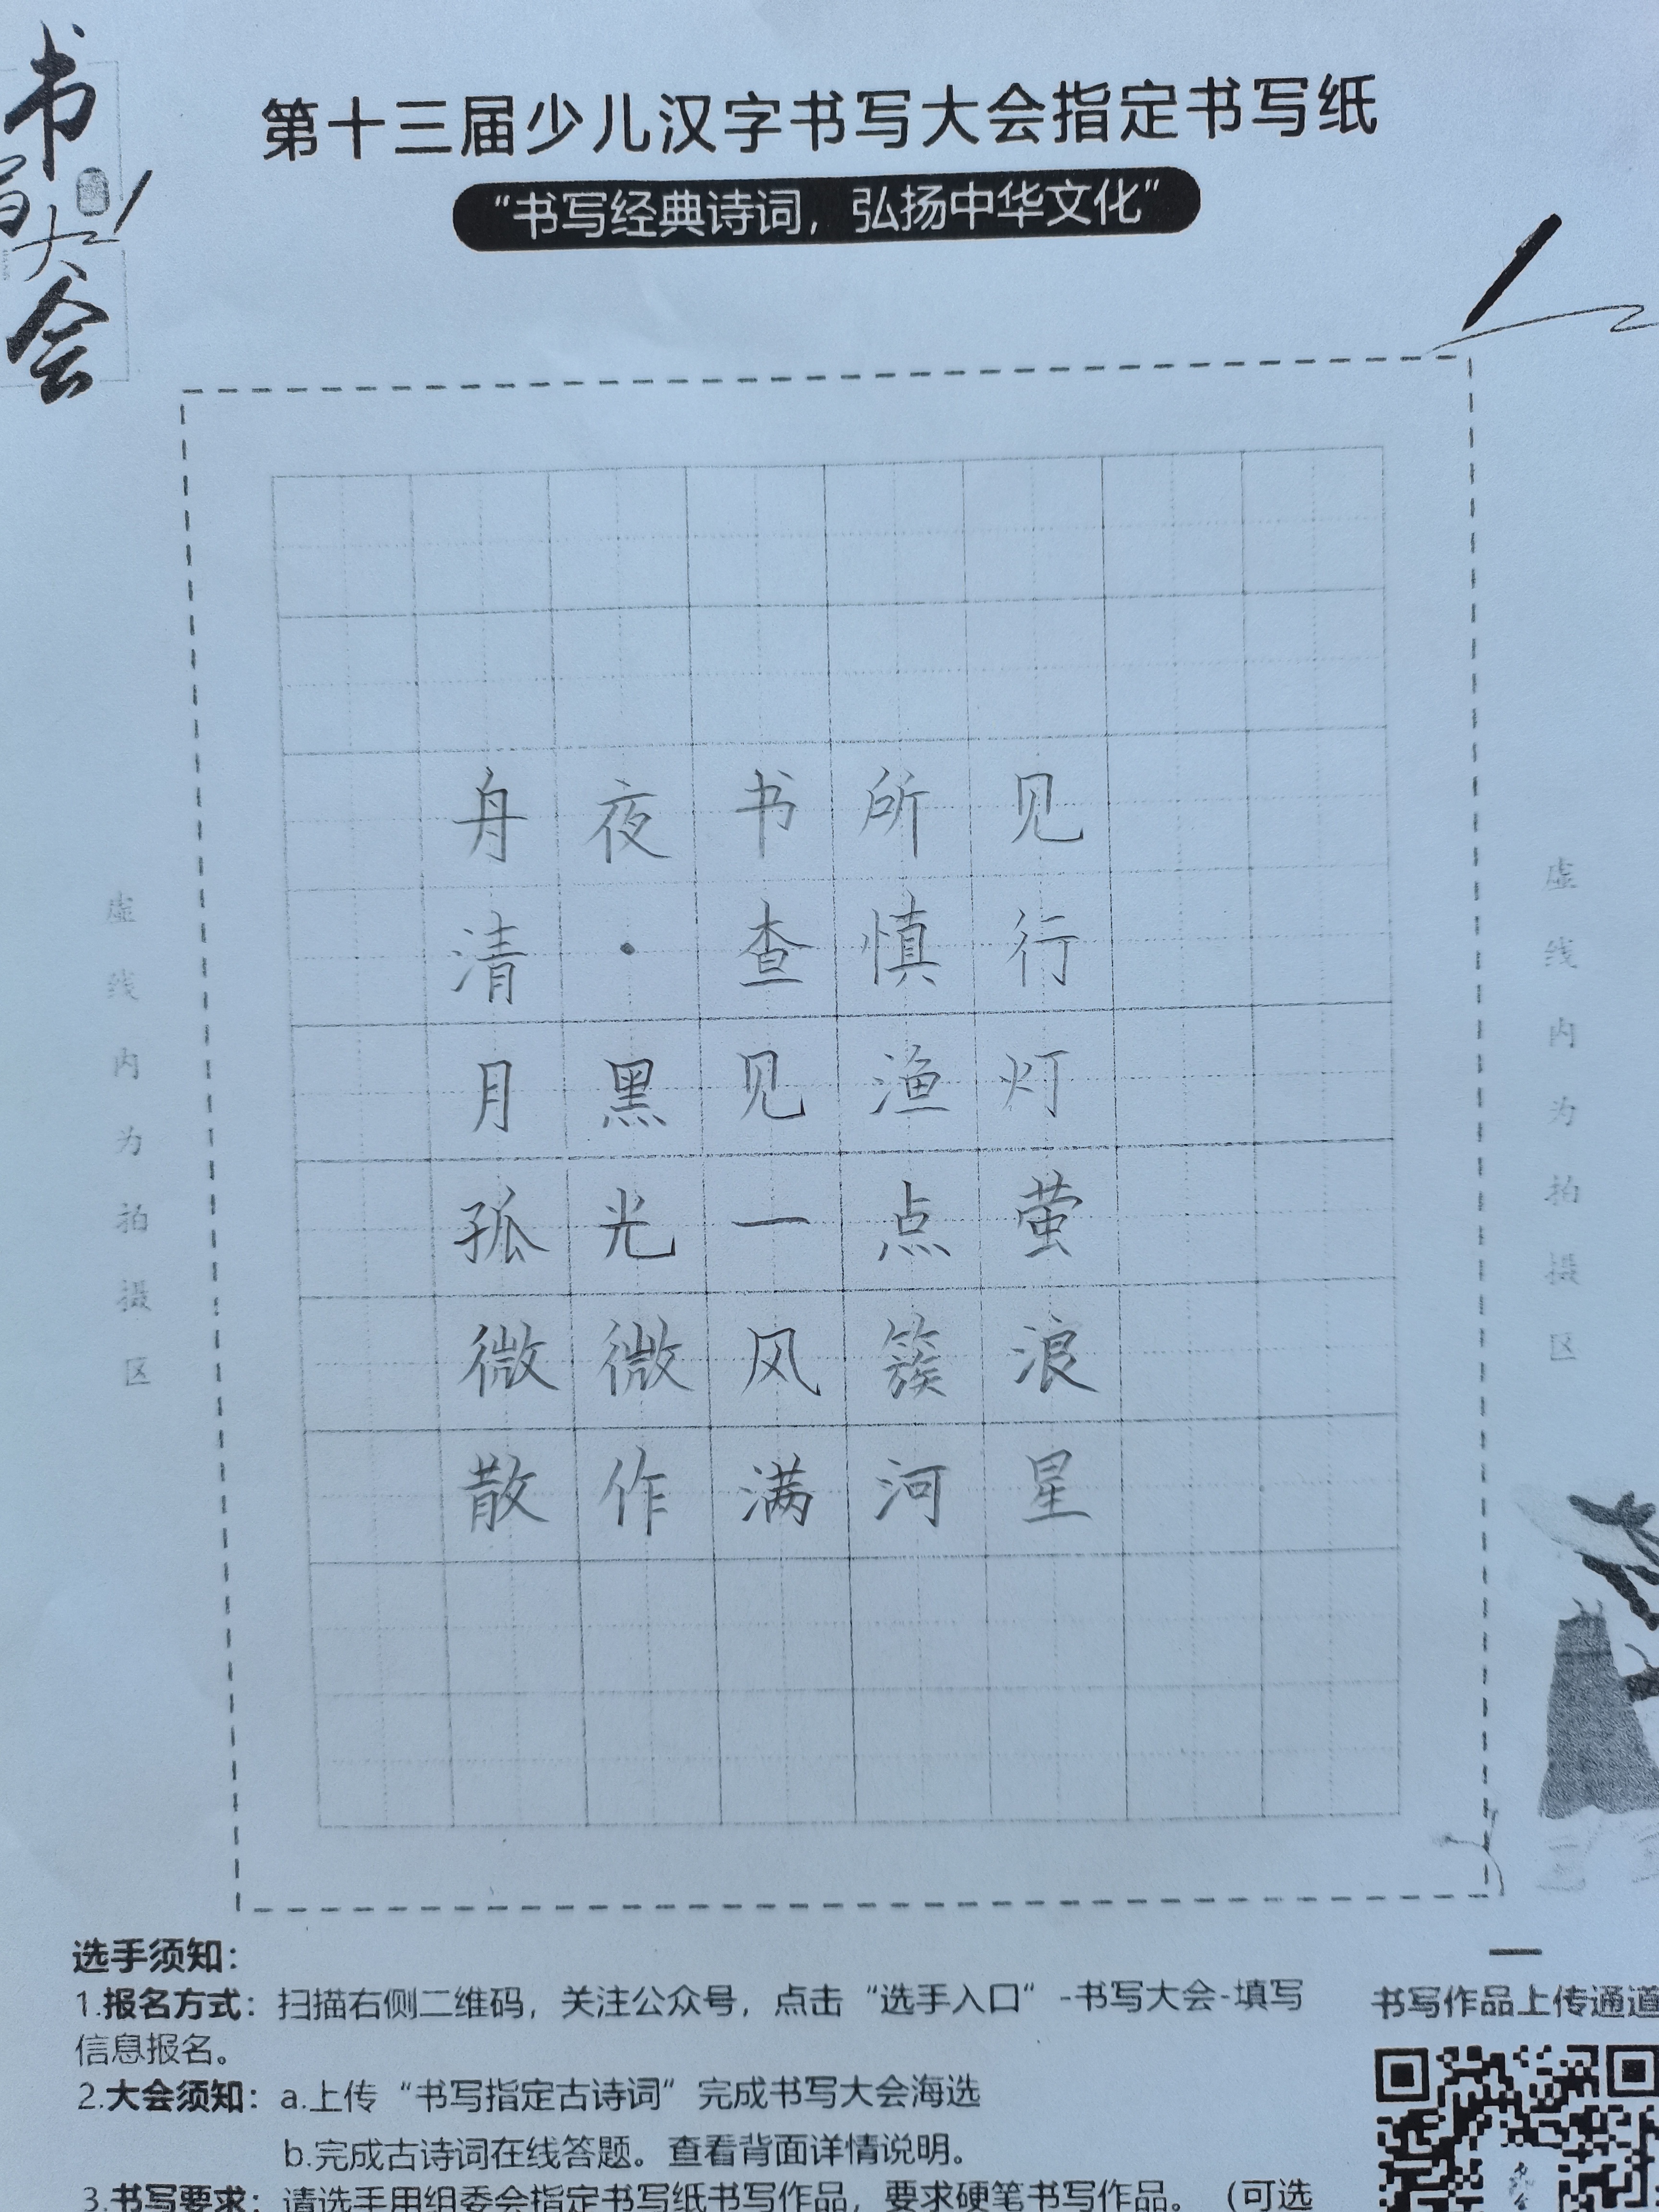 书写大会
第十三届少儿汉字书写大会指定书写纸
“书写经典诗词，弘扬中华文化”
舟夜书所见
清·查慎行
月黑见渔灯
孤光一点萤
微微风簇浪
散作满河星
虚线内为拍摄区
虚线内为拍摄区
选手须知：
1.报名方式：扫描右侧二维码，关注公众号，点击“选手入口”-书写大会-填写
信息报名。
2.大会须知：a.上传“书写指定古诗词”完成书写大会海选
b.完成古诗词在线答题。查看背面详情说明。
3.书写要求：请选手用组委会指定书写纸书写作品，要求硬笔书写作品。（可选
书写作品上传通道